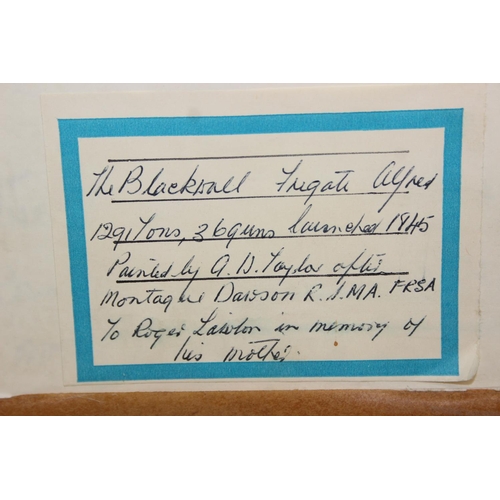 The Blackwall Frigate Alfred
1291 Tons, 36 guns launched 1845
Painted by A. D. Taylor after
Montague Dawson R.S.M.A. FRSA
To Roger Lawton in memory of
his mother.